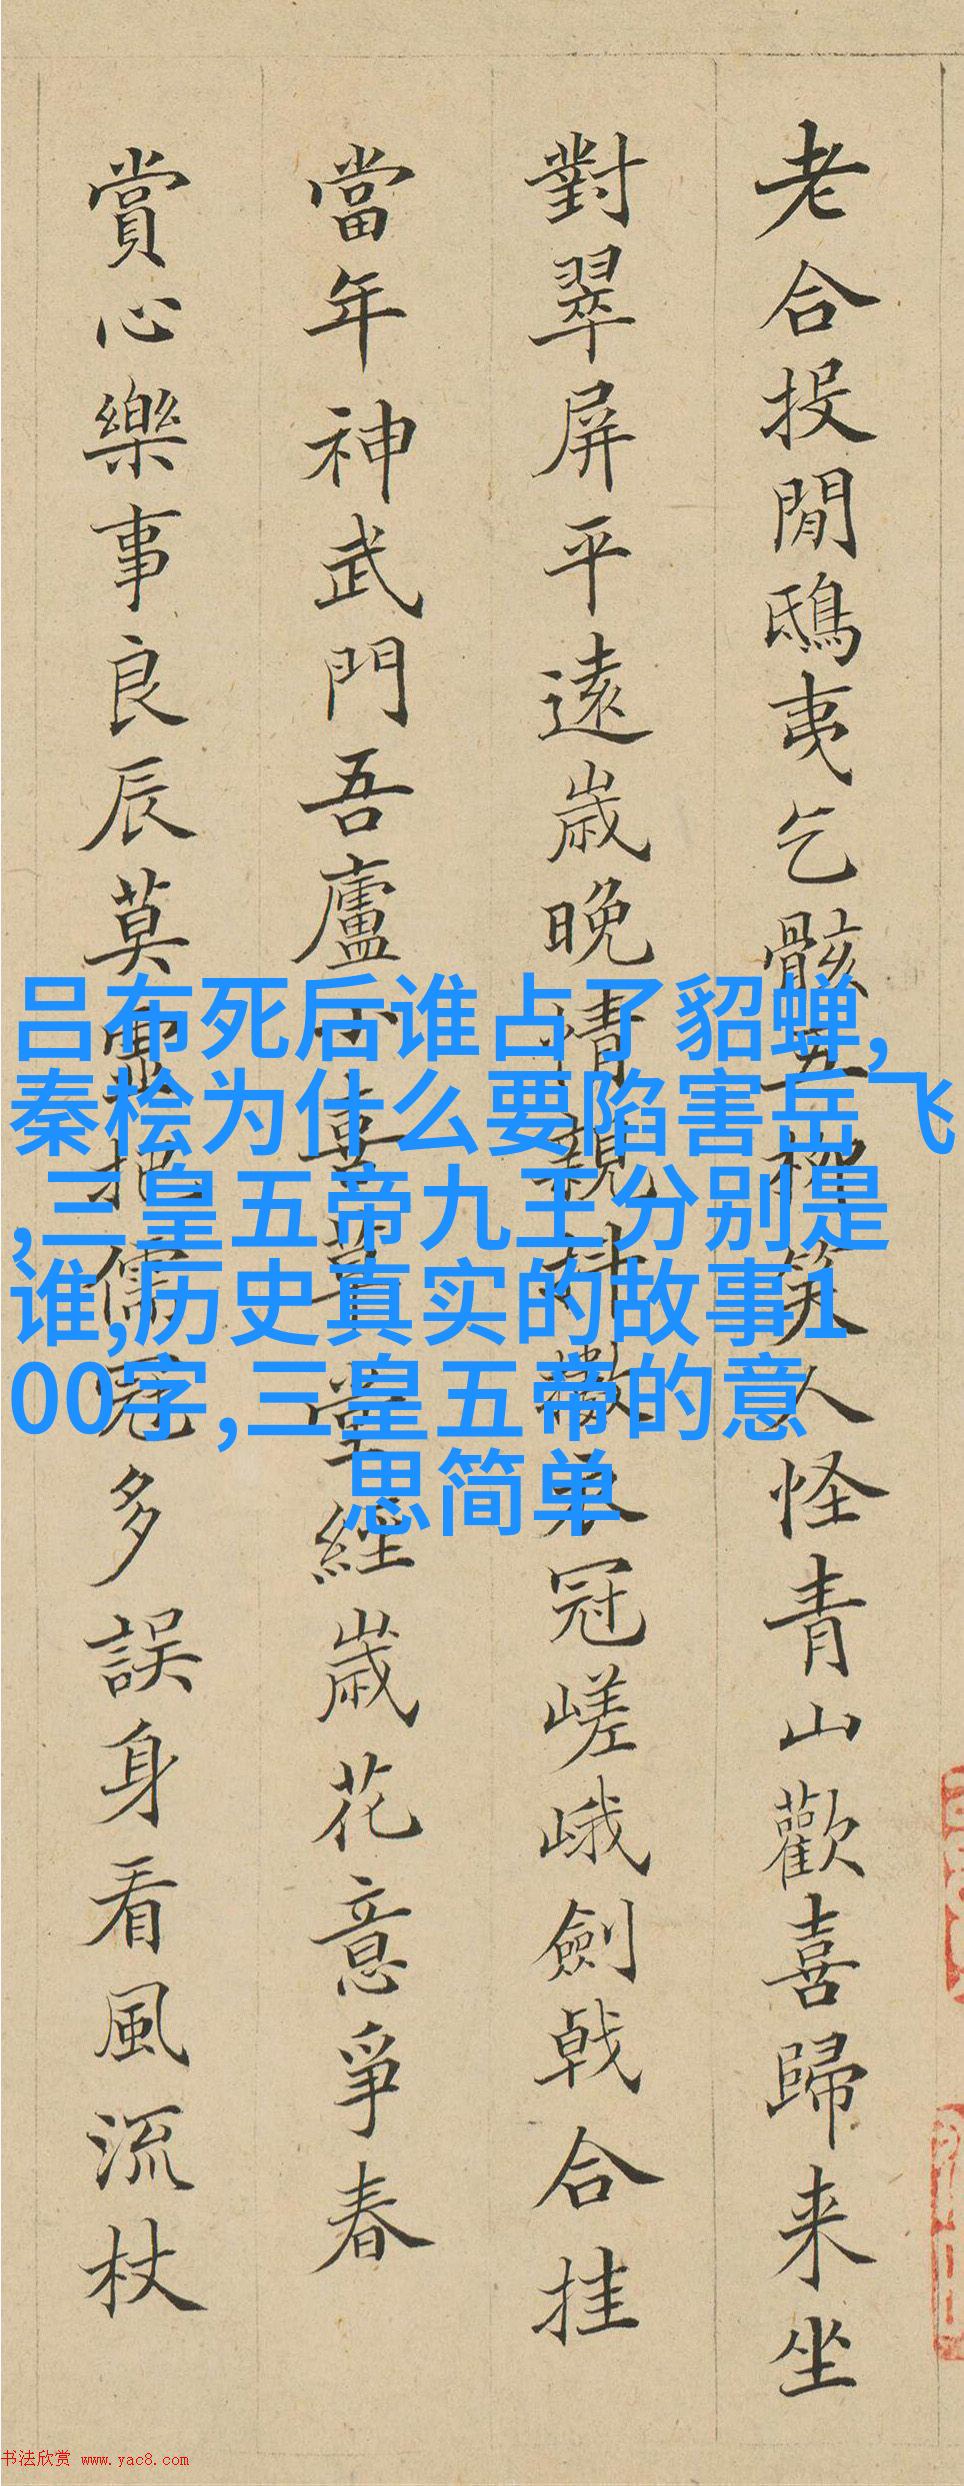 老合投閒鴟夷乞骸五柳笑人怪青山歡喜歸来坐
對翠屏平遠歲晚情親衣冠嵯峨劍戟合挂
當年神武門吾廬堂經歲花意爭春
賞心樂事良辰莫把儒冠多誤身看風流杖
吕布死后谁占了貂蝉,
秦桧为什么要陷害岳飞
,三皇五帝九王分别是
谁,历史真实的故事1
00字,三皇五帝的意
思简单
书法欣赏 www.yac8.com